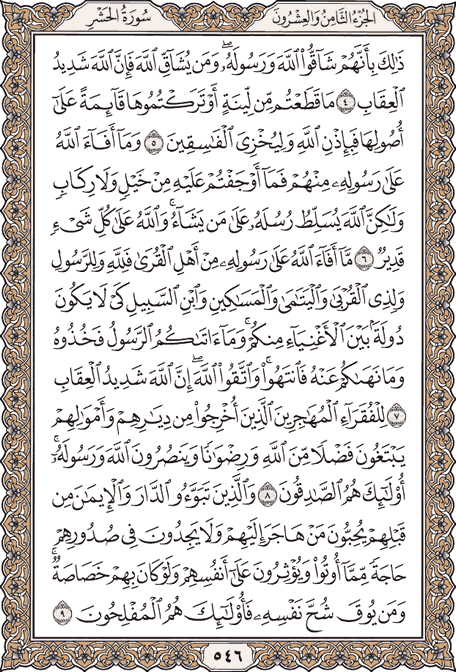 الجزء الثامن والعشرون سورة الحشر
ذَٰلِكَ بِأَنَّهُمْ شَاقُّوا۟ ٱللَّهَ وَرَسُولَهُۥ ۖ وَمَن يُشَآقِّ ٱللَّهَ فَإِنَّ ٱللَّهَ شَدِيدُ
ٱلْعِقَابِ ٤ مَا قَطَعْتُم مِّن لِّينَةٍ أَوْ تَرَكْتُمُوهَا قَآئِمَةً عَلَىٰٓ
أُصُولِهَا فَبِإِذْنِ ٱللَّهِ وَلِيُخْزِىَ ٱلْفَٰسِقِينَ ٥ وَمَآ أَفَآءَ ٱللَّهُ
عَلَىٰ رَسُولِهِۦ مِنْهُمْ فَمَآ أَوْجَفْتُمْ عَلَيْهِ مِنْ خَيْلٍ وَلَا رِكَابٍ
وَلَٰكِنَّ ٱللَّهَ يُسَلِّطُ رُسُلَهُۥ عَلَىٰ مَن يَشَآءُ ۚ وَٱللَّهُ عَلَىٰ كُلِّ شَىْءٍ
قَدِيرٌ ٦ مَّآ أَفَآءَ ٱللَّهُ عَلَىٰ رَسُولِهِۦ مِنْ أَهْلِ ٱلْقُرَىٰ فَلِلَّهِ وَلِلرَّسُولِ
وَلِذِى ٱلْقُرْبَىٰ وَٱلْيَتَٰمَىٰ وَٱلْمَسَٰكِينِ وَٱبْنِ ٱلسَّبِيلِ كَىْ لَا يَكُونَ
دُولَةًۢ بَيْنَ ٱلْأَغْنِيَآءِ مِنكُمْ ۚ وَمَآ ءَاتَىٰكُمُ ٱلرَّسُولُ فَخُذُوهُ
وَمَا نَهَىٰكُمْ عَنْهُ فَٱنتَهُوا۟ ۚ وَٱتَّقُوا۟ ٱللَّهَ ۖ إِنَّ ٱللَّهَ شَدِيدُ ٱلْعِقَابِ
٧ لِلْفُقَرَآءِ ٱلْمُهَٰجِرِينَ ٱلَّذِينَ أُخْرِجُوا۟ مِن دِيَٰرِهِمْ وَأَمْوَٰلِهِمْ
يَبْتَغُونَ فَضْلًا مِّنَ ٱللَّهِ وَرِضْوَٰنًا وَيَنصُرُونَ ٱللَّهَ وَرَسُولَهُۥٓ ۚ
أُو۟لَٰٓئِكَ هُمُ ٱلصَّٰدِقُونَ ٨ وَٱلَّذِينَ تَبَوَّءُو ٱلدَّارَ وَٱلْإِيمَٰنَ مِن
قَبْلِهِمْ يُحِبُّونَ مَنْ هَاجَرَ إِلَيْهِمْ وَلَا يَجِدُونَ فِى صُدُورِهِمْ
حَاجَةً مِّمَّآ أُوتُوا۟ وَيُؤْثِرُونَ عَلَىٰٓ أَنفُسِهِمْ وَلَوْ كَانَ بِهِمْ خَصَاصَةٌ ۚ
وَمَن يُوقَ شُحَّ نَفْسِهِۦ فَأُو۟لَٰٓئِكَ هُمُ ٱلْمُفْلِحُونَ ٩
٥٤٦